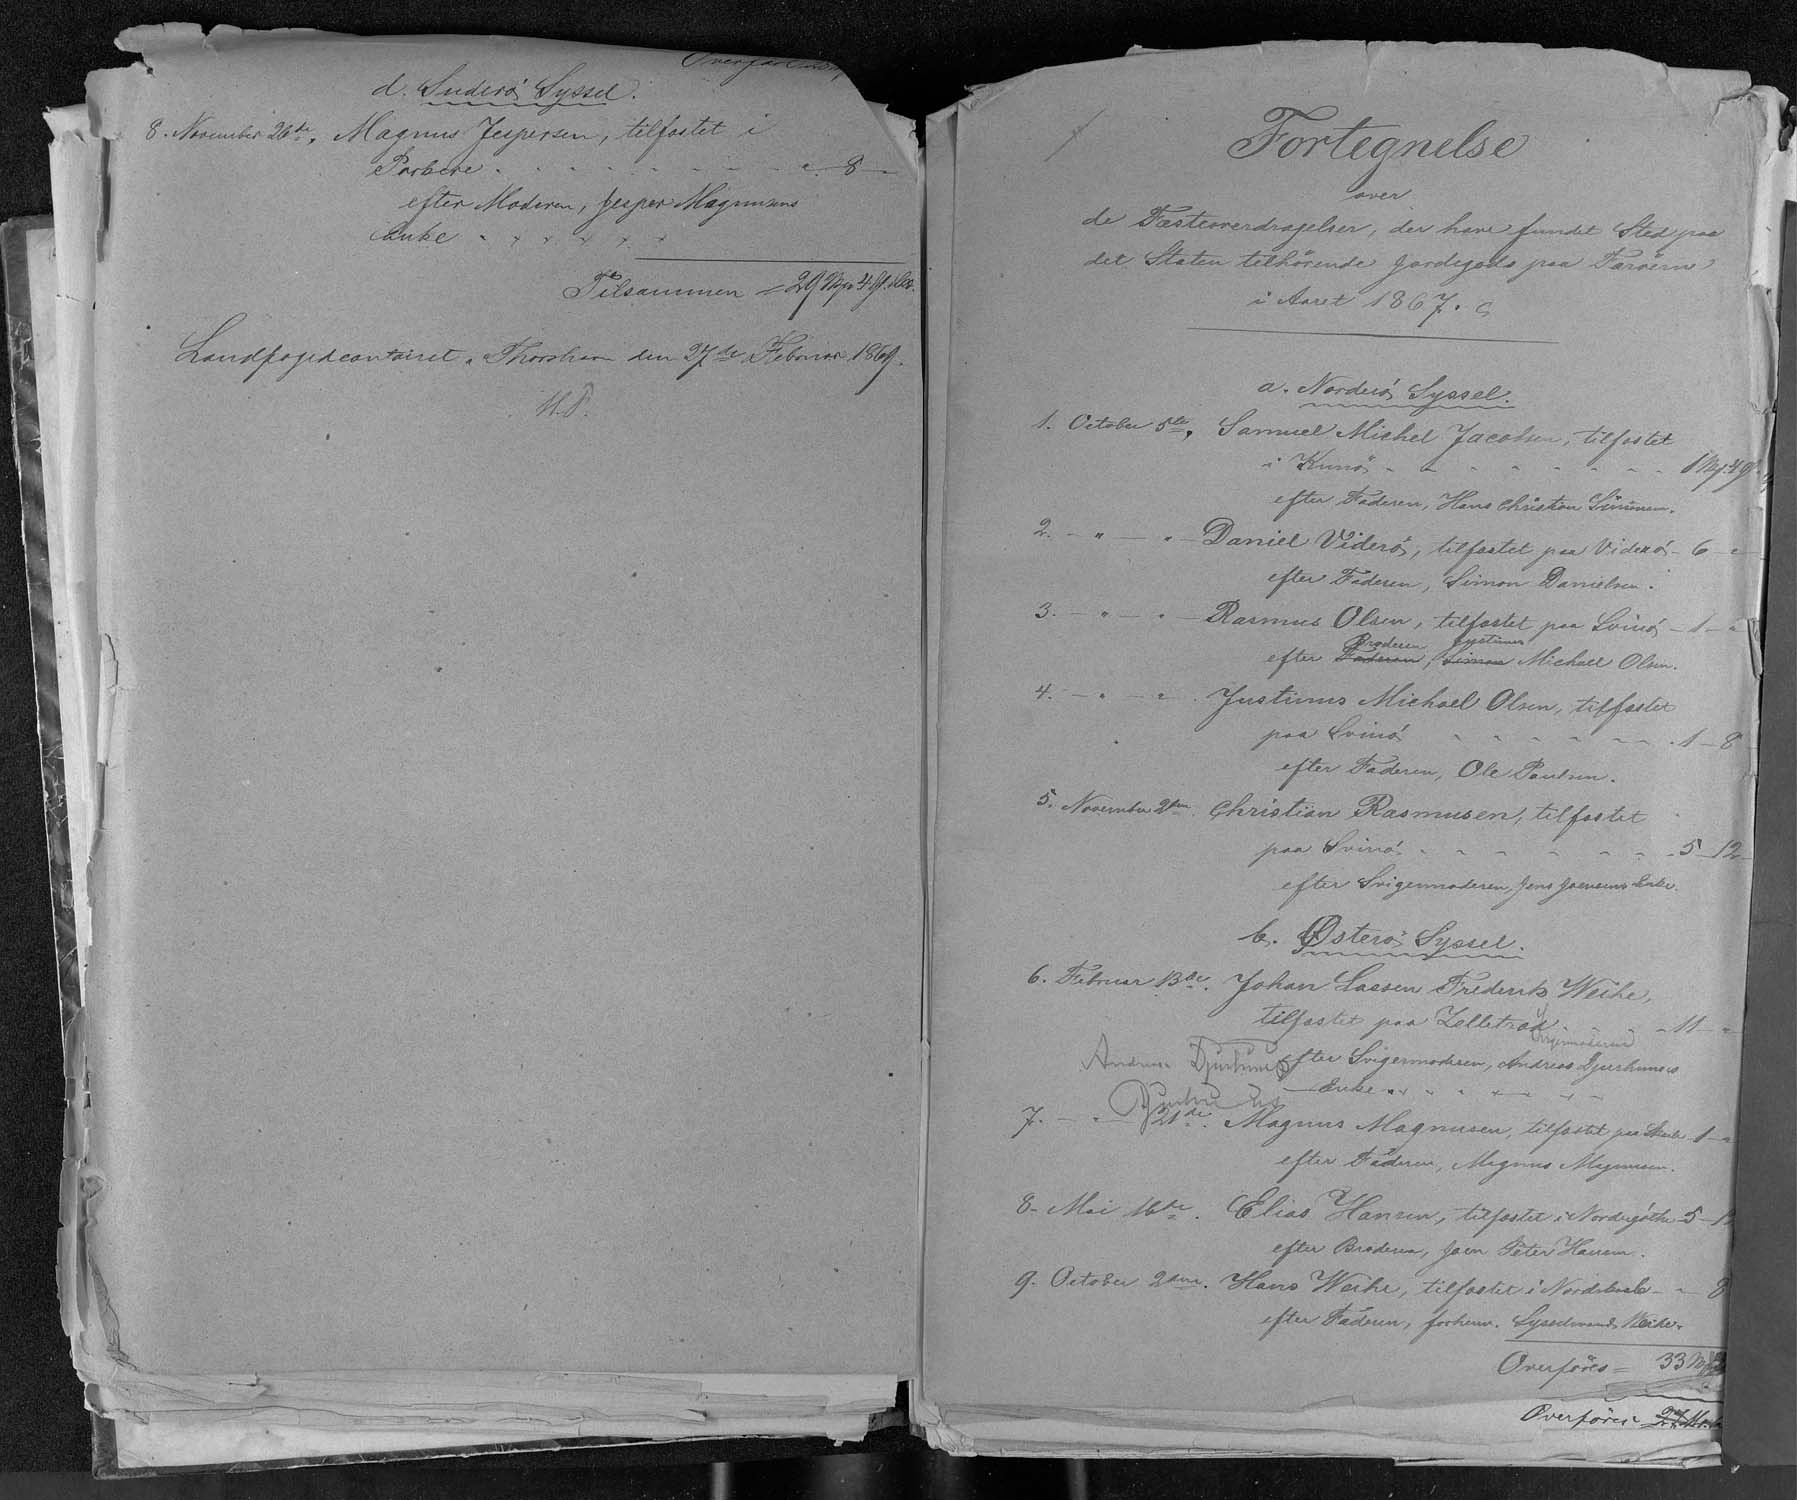 d. Suderö Syssel.
8. November 26de. Magnus Jespersen, tilfæstet i
Porkere . . . . . . . . . " 8 "
efter Moderen, Jesper Magnussens
Enke
Tilsammen = 29 Mk 4 G.
Landfogedcontoiret, Thorshavn den 27de Februar 1869.
Fortegnelse
over
de Fæsteoverdragelser, der have fundet Sted paa
det Staten tilhörende Jordegods paa Færöerne
i Aaret 1867.
a. Norderö Syssel.
1. October 5te. Samuel Michel Jacobsen, tilfæstet
i Kunö - - - - - - - - 1 Mk. 4 G.
efter Faderen, Hans Christian Simonsen.
2. - " - " - Daniel Viderö, tilfæstet paa Viderö - 6 - "
efter Faderen, Simon Danielsen.
3. - " - " - Rasmus Olsen, tilfæstet paa Svinö - 1 - "
Broderen Justinus
efter Faderen, Simon Michael Olsen.
4. - " - " . Justinus Michael Olsen, tilfæstet
paa Svinö - - - - - - - 1 - 8
efter Faderen, Ole Paulsen.
5. November 2den. Christian Rasmusen, tilfæstet
paa Svinö - - - - - - - 5 - 12
efter Svigermoderen, Jens Joensens Enke.
b. Österö Syssel.
6. Februar 13de. Johan Lassen Frederik Weihe,
tilfæstet paa Zelletrad - - - - 11 - "
Svigermoderen
Andreas Djurhuus efter Svigermoderen, Andreas Djurhuuses
Enke
Djurhuus
7. - " - 21de. Magnus Magnusen, tilfæstet paa - 1 - "
efter Faderen, Magnus Magnusen.
8. Mai 16de. Elias Hansen, tilfæstet i Nordregöthe 5 - 12
efter Broderen, Joen Peter Hansen.
9. October 2den. Hans Weihe, tilfæstet i Nordskaale - " 8
efter Faderen, forhenv. Sysselmand Weihe.
Overföres = 33 Mk
Overföres =